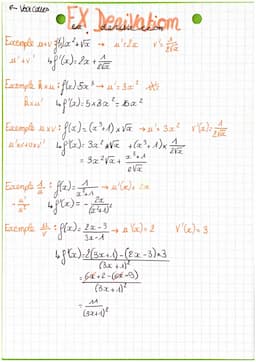 EX Derivation
Exemple u+v : f(x) x² + √x → u'=2x v' = 1/2√x
u'+v' ↳ f'(x) = 2x + 1/2√x
Exemple k×u : f(x) 5x³ → u' = 3x²
k×u' ↳ f'(x) = 5×3x² = 15x²
Exemple u×v : f(x) = (x³+1) × √x → u' = 3x² v'(x) = 1/2√x
u'×v+u×v' ↳ f'(x) = 3x² × √x + (x³+1) × 1/2√x
= 3x²√x + x³+1/2√x
Exemple 1/u : f(x) = 1/x²+1 → u'(x) = 2x
-u'/u² ↳ f'(x) = - 2x/(x²+1)²
Exemple u/v : f(x) = 2x-3/3x-1 → u'(x) = 2 v'(x) = 3
↳ f'(x) = 2(3x+1)-(2x-3)×3/(3x+1)²
= 6x+2-(6x-9)/(3x+1)²
= 11/(3x+1)²